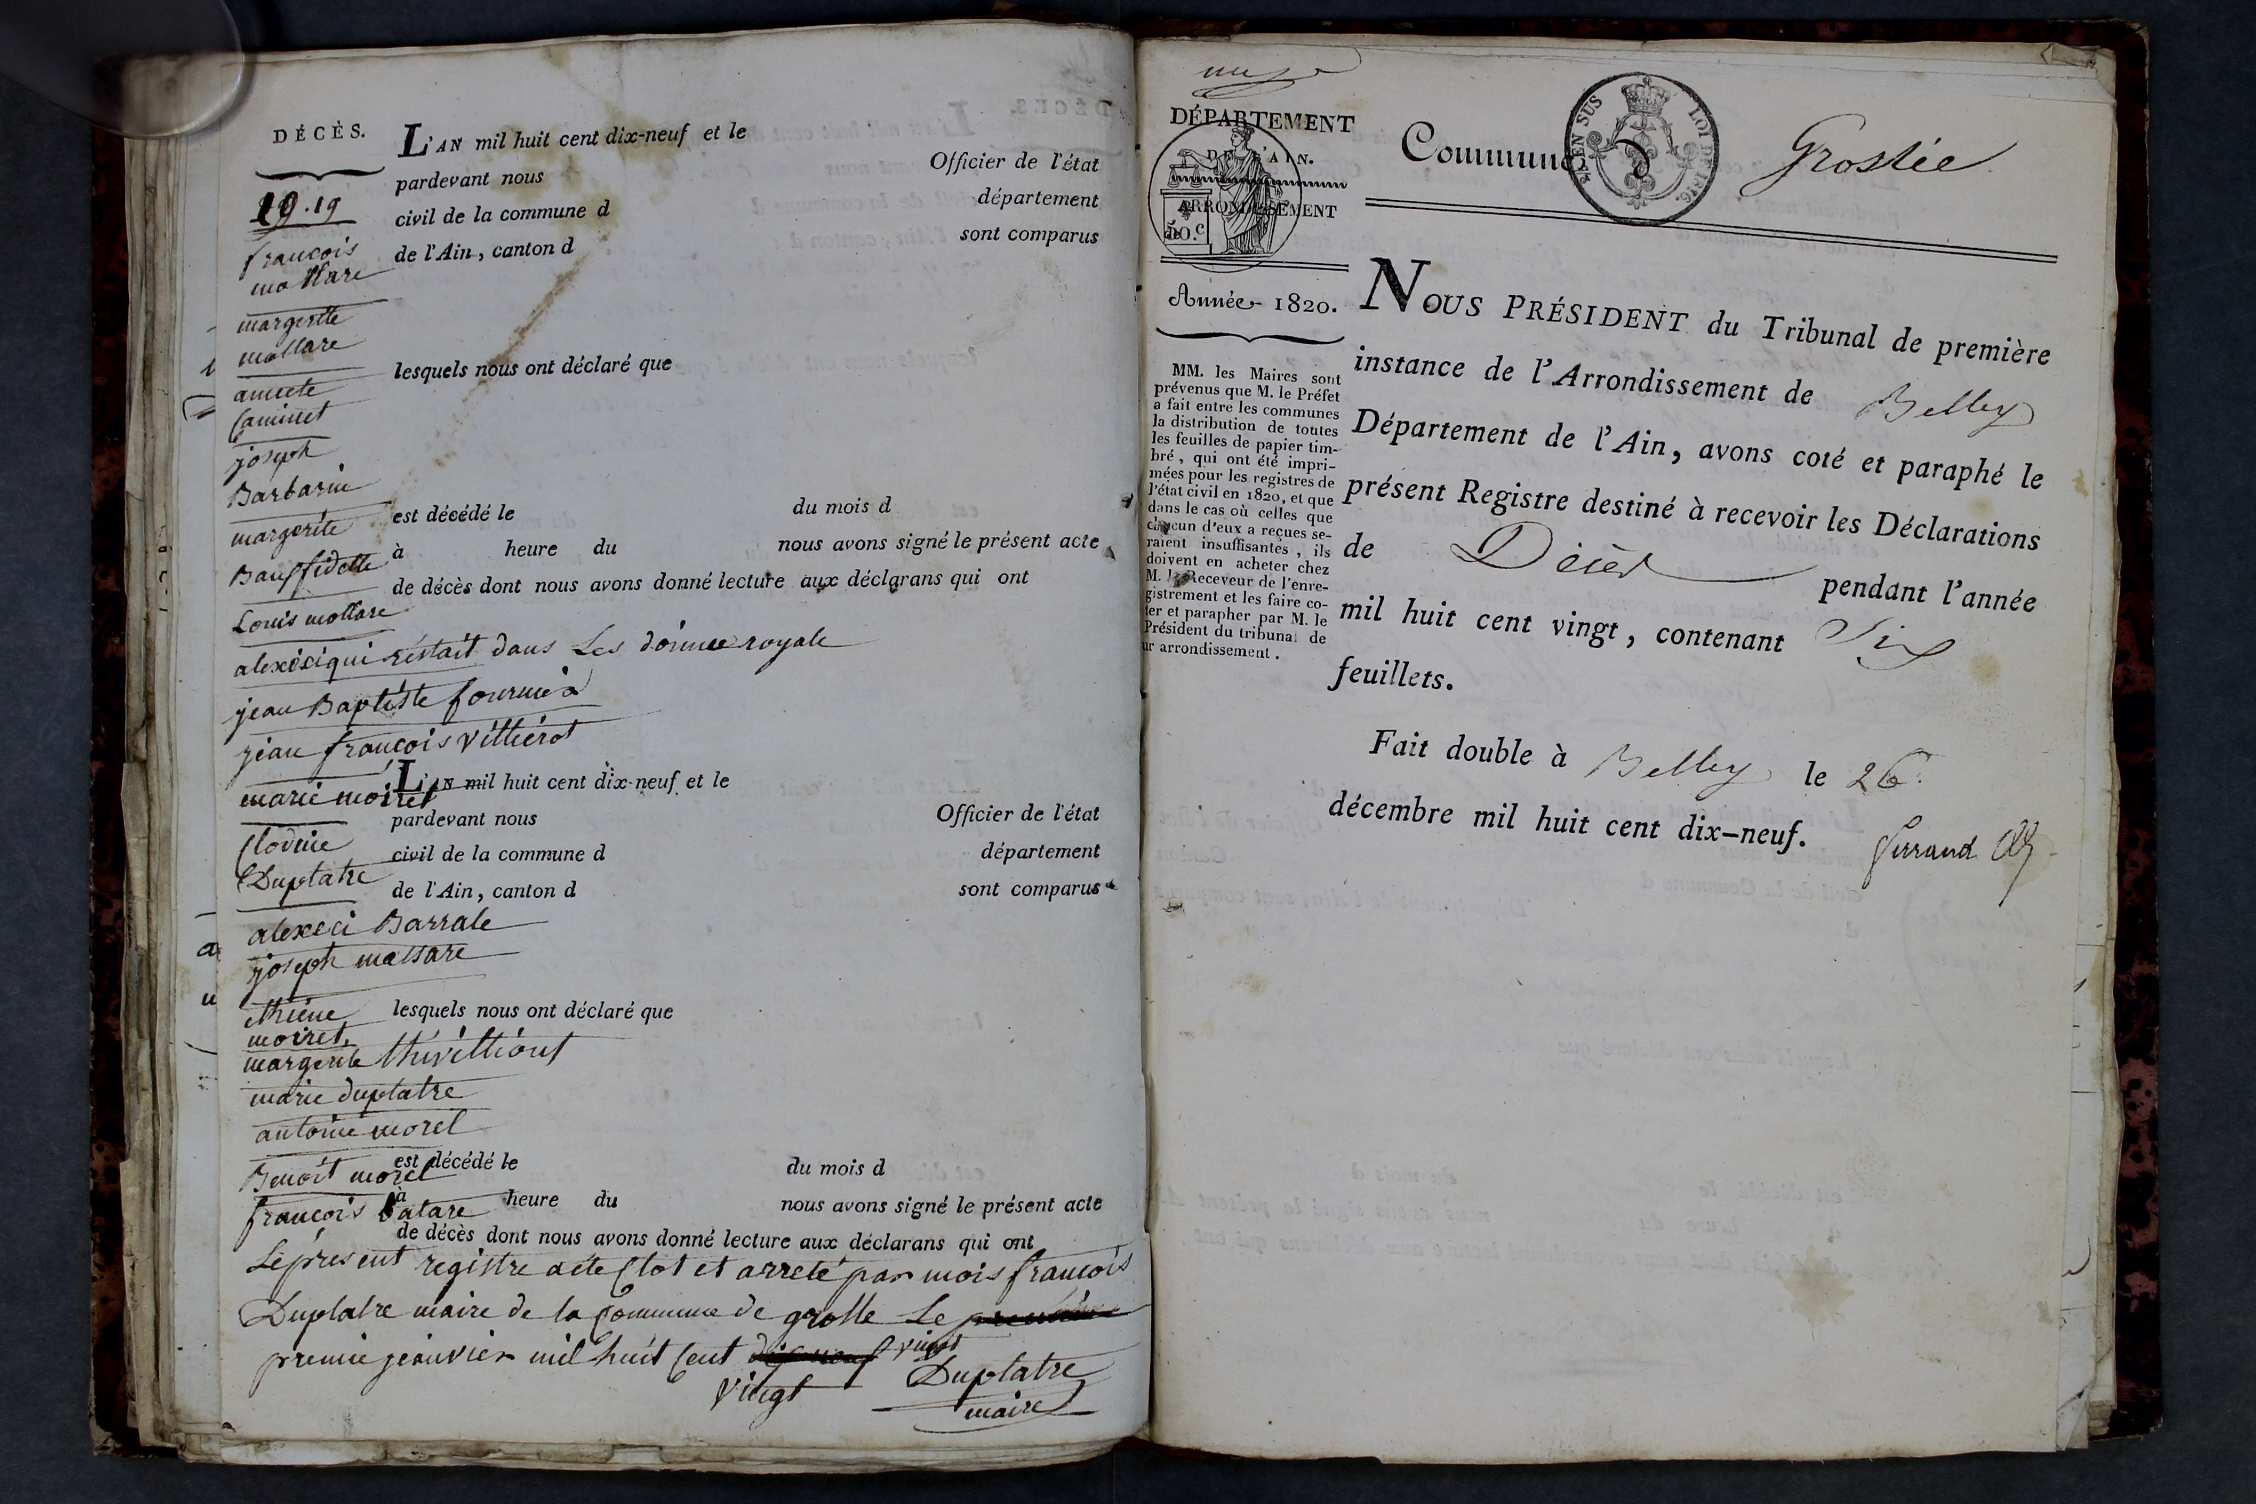 DÉCÈS.
19.19
françois
mollare
margerite
mollare
Caminet
joseph
Barbarin
margerite
Louis mollare
jean Baptiste fournié
jean françois
marie moiret
Clodine
Duplatre
alexeci Barrale
joseph massare
ethiene
moiret
margerite
marie duplatre
antoine morel
Benoit morel
françois
L'AN mil huit cent dix-neuf et le
pardevant nous Officier de l'état
civil de la commune d département
de l'Ain, canton d sont comparus
lesquels nous ont déclaré que
est décédé le du mois d
à heure du nous avons signé le présent acte
de décès dont nous avons donné lecture aux déclarans qui ont
L'AN mil huit cent dix-neuf et le
pardevant nous Officier de l'état
civil de la commune d département
de l'Ain, canton d sont comparus
lesquels nous ont déclaré que
est décédé le du mois d
à heure du nous avons signé le présent acte
de décès dont nous avons donné lecture aux déclarans qui ont
Le présent registre a été Clot et arreté par mois françois
Duplatre maire de la Commune de grolle Le
premie jeanvier mil huit Cent vingt
vingt
Duplatre
maire
DÉPARTEMENT
DE L'AIN.
ARRONDISSEMENT
de
50.c
Année 1820.
MM. les Maires sont
prévenus que M. le Préfet
a fait entre les communes
la distribution de toutes
les feuilles de papier tim-
bré, qui ont été impri-
mées pour les registres de
l'état civil en 1820, et que
dans le cas où celles que
chacun d'eux a reçues se-
raient insuffisantes, ils
doivent en acheter chez
M. le Receveur de l'enre-
gistrement et les faire co-
ter et parapher par M. le
Président du tribunal de
ur arrondissement.
Commune d Groslée
EN SUS LOI DE 1816.
NOUS PRÉSIDENT du Tribunal de première
instance de l'Arrondissement de Belley
Département de l'Ain, avons coté et paraphé le
présent Registre destiné à recevoir les Déclarations
de Décès pendant l'année
mil huit cent vingt, contenant Six
feuillets.
Fait double à Belley le 26
décembre mil huit cent dix-neuf.